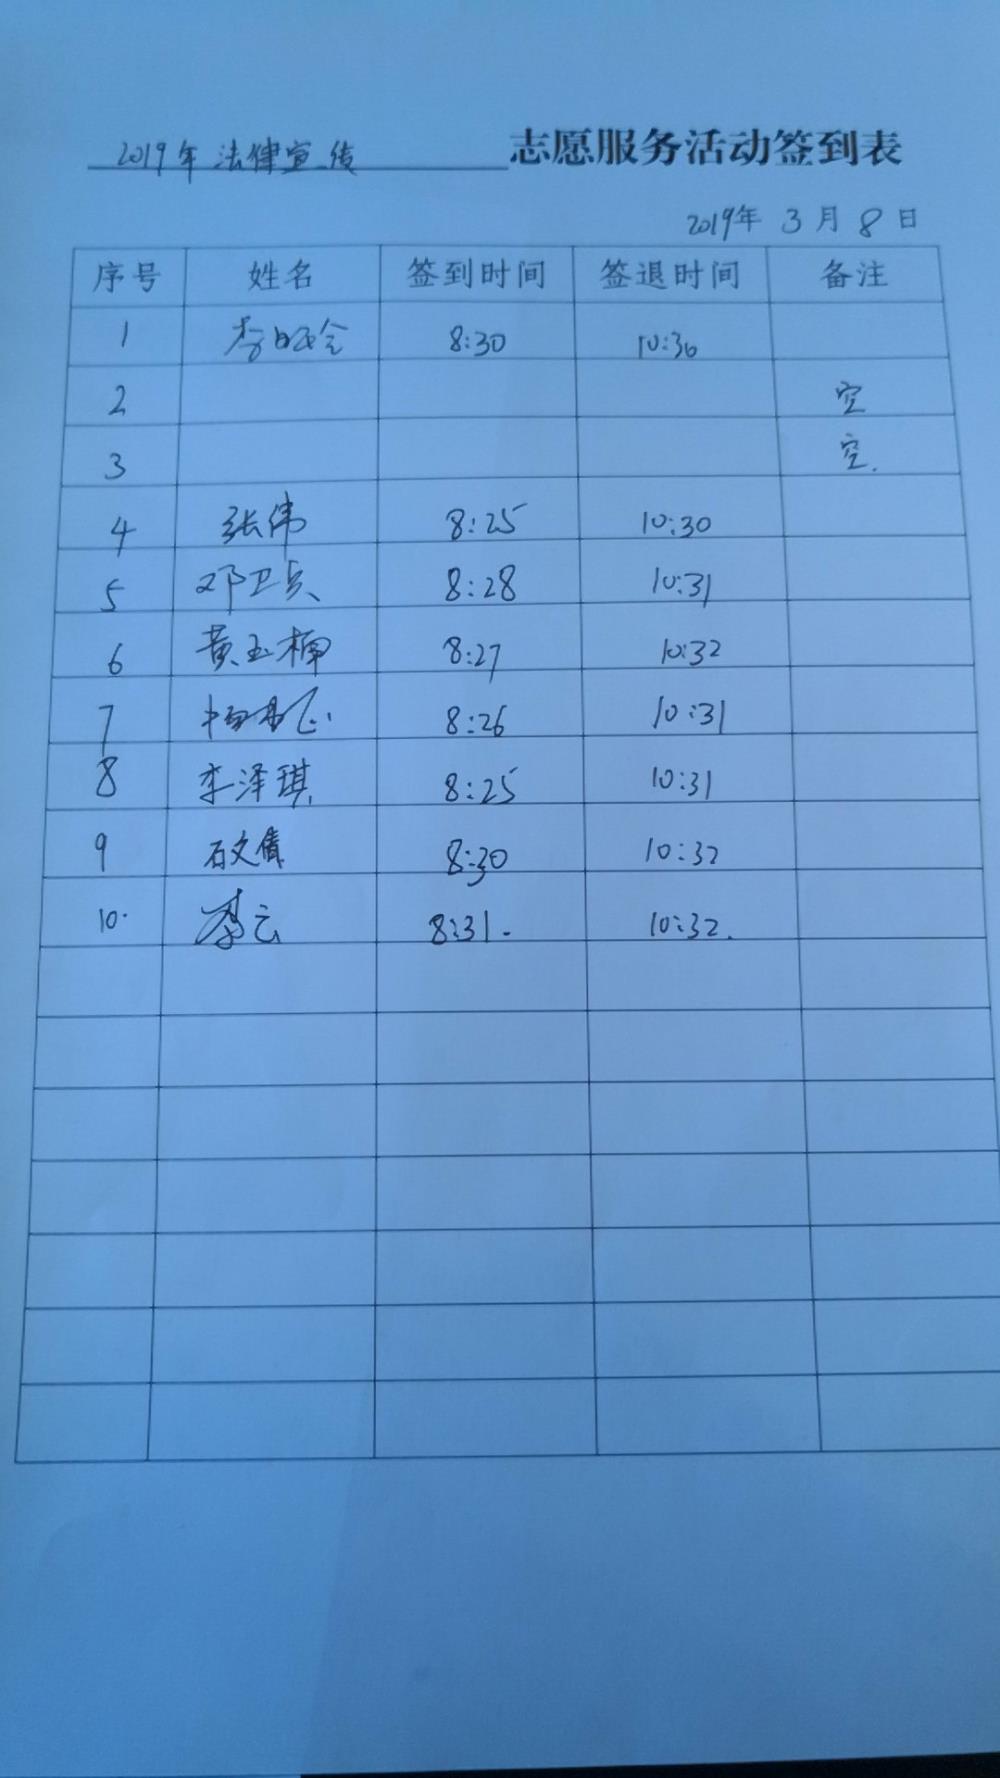 2019年法律宣传 志愿服务活动签到表
2019年 3月 8日
序号 姓名 签到时间 签退时间 备注
1 8:30 10:30
2 空
3 空.
4 张伟 8:25 10:30
5 邓卫兵 8:28 10:31
6 黄玉楠 8:27 10:32
7 8:26 10:31
8 李泽琪 8:25 10:31
9 石文倩 8:30 10:32
10. 李云 8:31. 10:32.